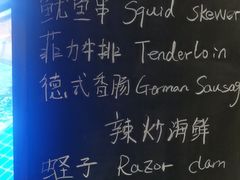 鱿鱼串 Squid skewer
菲力牛排 Tenderloin
德式香肠 German Sausag
辣炒海鲜
蛏子 Razor clam